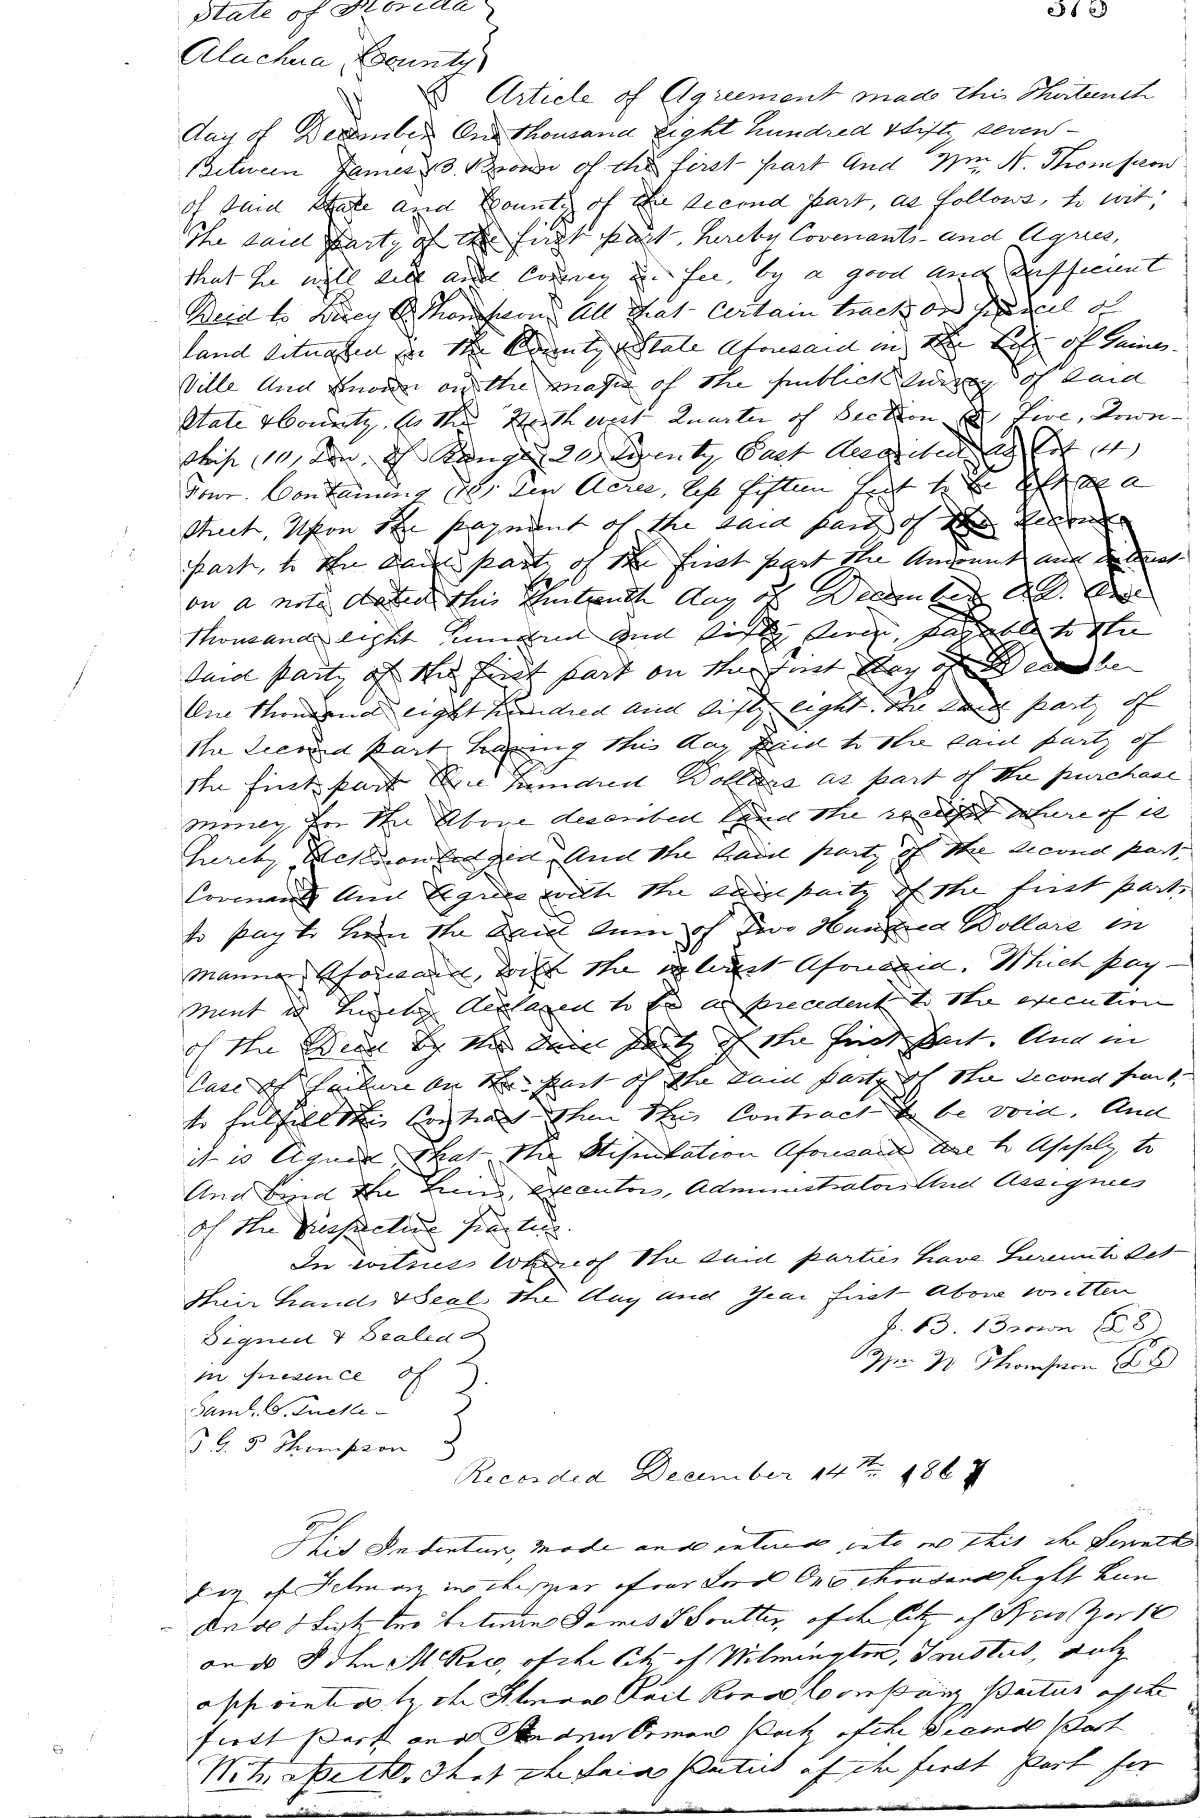 State of Florida
375
Alachua County
Article of Agreement made this Thirteenth
day of December One thousand eight hundred & fifty seven -
Between James B. Brown of the first part And Wm N. Thompson
of said State and County of the second part, as follows, to wit;
The said party of the first part, hereby Covenants and Agrees,
that he will sell and Convey in fee, by a good and sufficient
Deed to Thompson, All that certain tract or parcel of
land situated in the County & State aforesaid in the City of Gaines-
ville And known on the maps of the publick survey of said
State & County, As the North west Quarter of Section (5) five, Town-
ship (10) Ten, of Range (20) Twenty East described as Lot (4)
Four. Containing (10) Ten Acres, less fifteen feet to be left as a
street, Upon the payment of the said party of the second
part, to the said party of the first part the Amount and interest
on a note dated this Thirteenth day of December A.D. One
thousand eight hundred and fifty seven, payable to the
said party of the first part on the first day of December
One thousand eight hundred and fifty eight. The said party of
the second part having this day paid to the said party of
the first part One hundred Dollars as part of the purchase
money for the Above described land the receipt where of is
hereby Acknowledged, And the said party of the second part,
Covenants And Agrees with the said party of the first part,
to pay to him the said sum of Two Hundred Dollars in
manner Aforesaid, with the interest Aforesaid. Which pay-
ment is hereby declared to be a precedent to the execution
of the Deed by the said party of the first part. And in
Case of failure on the part of the said party of the second part,
to fulfill this Contract then this Contract to be void. And
it is Agreed that the Stipulation Aforesaid are to Apply to
And bind the heirs, executors, Administrators And Assignees
of the respective parties.
In witness Whereof the said parties have herewith set
their hands & Seals the day and Year first Above written
Signed & Sealed
J. B. Brown (LS)
in presence of
Wm N Thompson (LS)
Saml. C. Tucke-
T G P Thompson
Recorded December 14th 1867
This Indenture, made and entered into on this the Seventh
day of February in the year of our Lord One thousand Eight hun
dred & Sixty two between James T Soutter, of the City of New York
and John McRae, of the City of Wilmington, Trustees, duly
appointed by the Florida Rail Road Company Parties of the
first Part, and Andrew Orman Party of the Second Part
Witnesseth, That the Said Parties of the first Part for